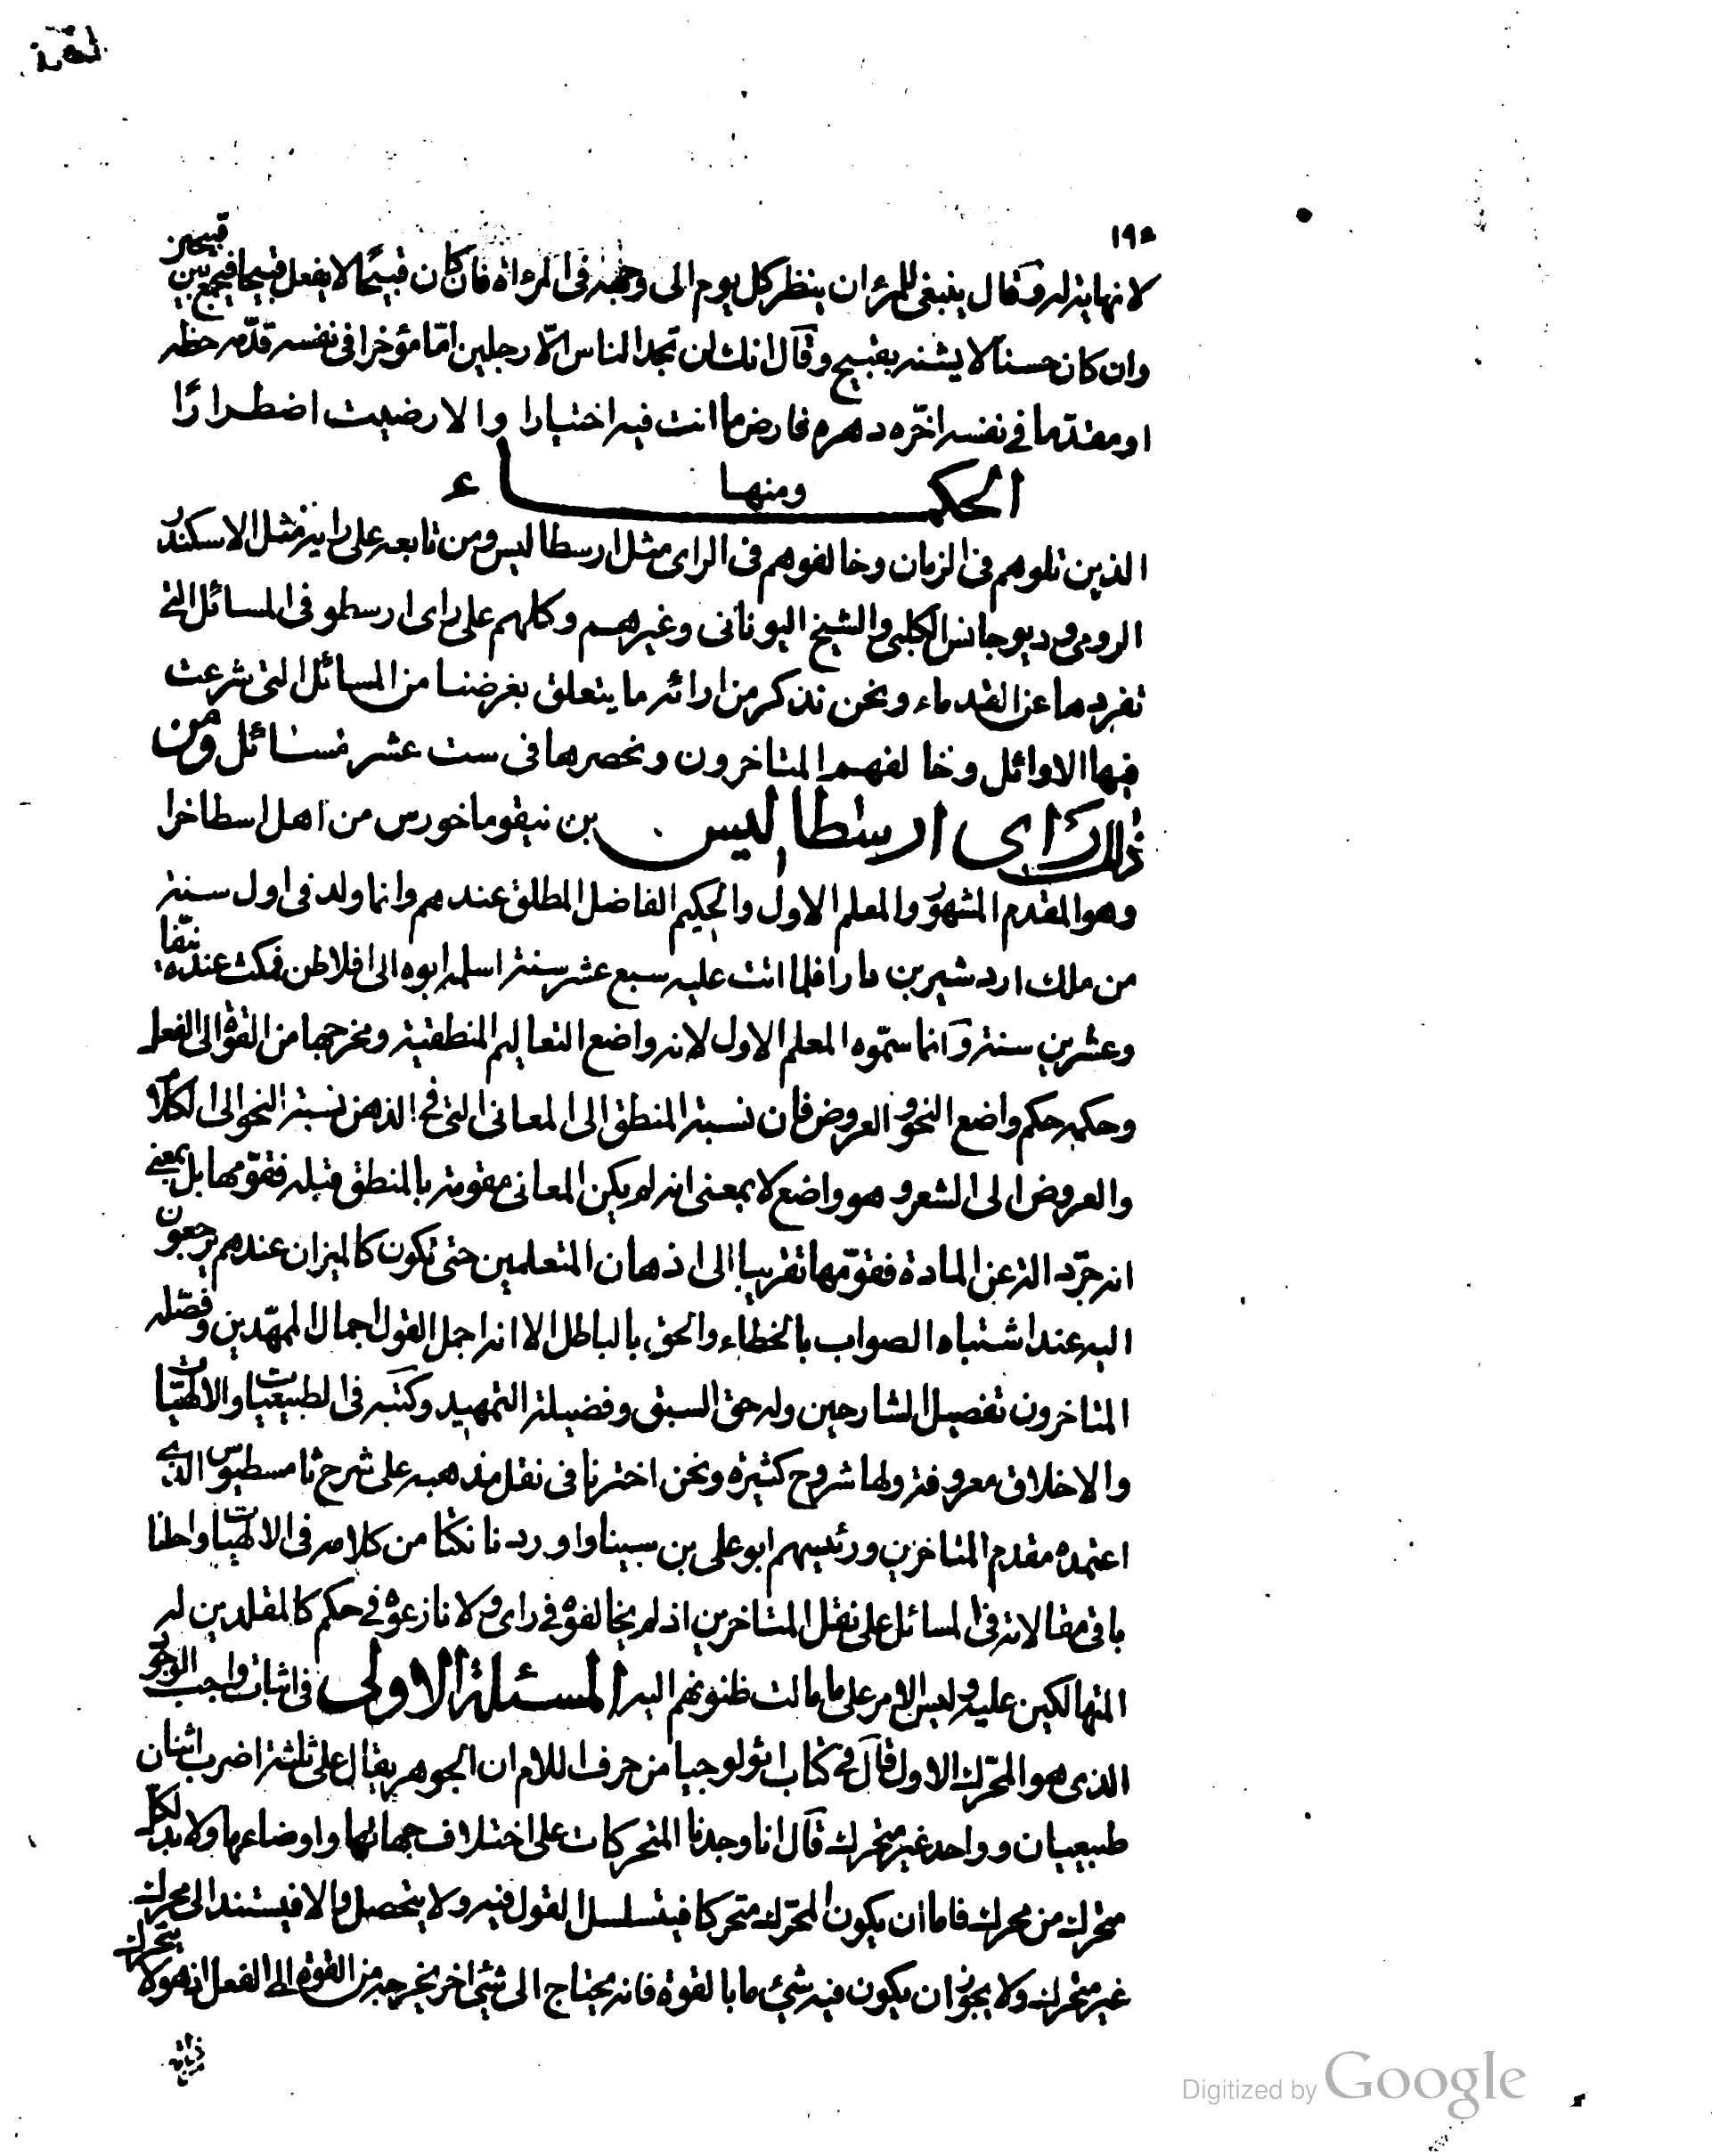 ١٩٥
لا نهاية له وقال ينبغي للمرء ان ينظر كل يوم الى وجهه فى المرءاة فان كان قبيحًا لا يفعل قبيحا فيجمع بين قبيحين
وان كان حسنا لا يشنه بقبيح وقال انك لن تجد الناس الّا رجلين امّا مؤخرا فى نفسه قدّمه حظه
او مقدّما فى نفسه اخّره دهره فارض ما انت فيه اختيارا والا رضيت اضطرارًا
ومنها الحكماء
الذين تلوهم فى الزمان وخالفوهم فى الراى مثل ارسطاليس ومن تابعه على رايه مثل الاسكندر
الرومى و ديوجانس الكلبى والشيخ اليونانى وغيرهم وكلهم على راى ارسطو فى المسائل التى
تفرد بها عن القدماء ونحن نذكر من ارائه ما يتعلق بغرضنا من المسائل التى شرعت
فيها الاوائل وخالفهم المتاخرون ونحصرها فى ست عشر مسائل ومن
ذلك راى ارسطاليس بن نيقوماخورس من اهل اسطاخرا
وهو المقدم المشهور والمعلم الاول والحكيم الفاضل المطلق عندهم وانما ولد فى اول سنة
من ملك اردشير بن دارا فلما اتت عليه سبع عشر سنة اسلمه ابوه الى افلاطن فمكث عنده نيّفا
وعشرين سنة وانما سمّوه المعلم الاول لانه واضع التعاليم المنطقية ومخرجها من القوة الى الفعل
وحكمه حكم واضع النحو والعروض فان نسبة المنطق الى المعانى التى فى الذهن نسبة النحو الى الكلام
والعروض الى الشعر و هو واضع لا بمعنى انه لم يكن المعانى مقومة بالمنطق قبله فقوّمها بل بمعنى
انه جرّد الة عن المادة فقوّمها تقريبا الى اذهان المتعلمين حتى تكون كالميزان عندهم يرجعون
اليه عند اشتباه الصواب بالخطاء والحق بالباطل الا انه اجمل القول اجمال الممهّدين وفصّله
المتاخرون تفصيل الشارحين وله حق السبق وفضيلة التمهيد وكتبه فى الطبيعيات والالهيّات
والاخلاق معروفة ولها شروح كثيرة ونحن اخترنا فى نقل مذهبه على شرح ثامسطيوس الذى
اعتمده مقدم المتاخرين ورئيسهم ابو على بن سينا واوردنا نكتا من كلامه فى الالهيات واحلنا
باقى مقالاته فى المسائل على نقل المتاخرين اذ لم يخالفوه فى راى ولا نازعوه فى حكم كالمقلدين له
المتهالكين عليه وليس الامر على ما مالت ظنونهم اليه المسئلة الاولى فى اثبات واجب الوجود
الذى هو المحّرك الاول قال فى كتاب اثولوجيا من حرف اللام ان الجوهر يقال على ثلثة اضرب اثنان
طبيعيان و واحد غير متحرك قال انا وجدنا المتحركات على اختلاف جهاتها واوضاعها ولا بد لكل
متحرك من محرك فاما ان يكون المحّرك متحركا فيتسلسل القول فيه ولا يتحصل والا فيستند الى محرك
غير متحرك ولا يجوز ان يكون فيه شئ ما بالقوة فانه يحتاج الى شئ اخر يخرجه من القوة الى الفعل اذ هو لا يتحرك
Digitized by Google